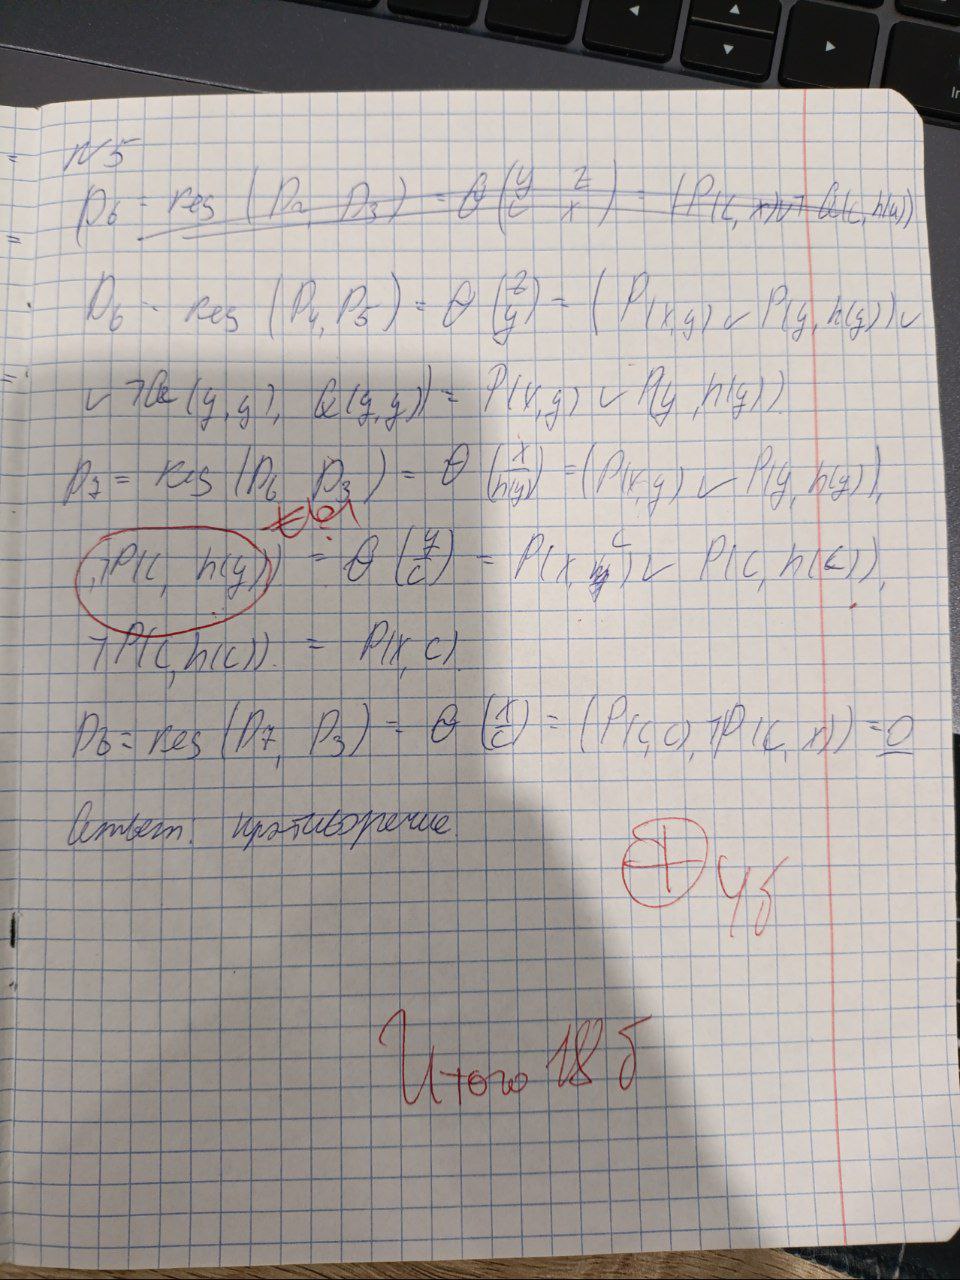 N5
D₆ = res (D₂, D₃) = θ (y/c z/x) = (P(c, x) ∨ ¬Q(c, h(c))
D₆ = res (D₄, D₅) = θ (z/y) = (P(x,y) ∨ P(y, h(y)) ∨
∨ ¬Q(y,y), Q(y,y)) = P(x,y) ∨ P(y, h(y)).
D₇ = res (D₆ D₃) = θ (x/h(y)) = (P(x,y) ∨ P(y, h(y)),
¬P(c, h(y))) = θ (y/c) = P(x, c) ∨ P(c, h(c)),
¬P(c, h(c)). = P(x, c).
D₈ = res (D₇, D₃) = θ (x/c) = (P(c, c), ¬P(c, x)) = 0
Ответ: противоречие.
+ 4б
Итого 18 б
In